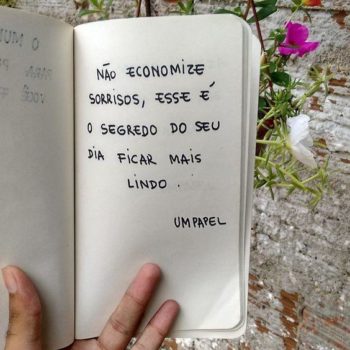 O MU
PARA
VOCÊ
NÃO ECONOMIZE
SORRISOS, ESSE É
O SEGREDO DO SEU
DIA FICAR MAIS
LINDO.
UMPAPEL